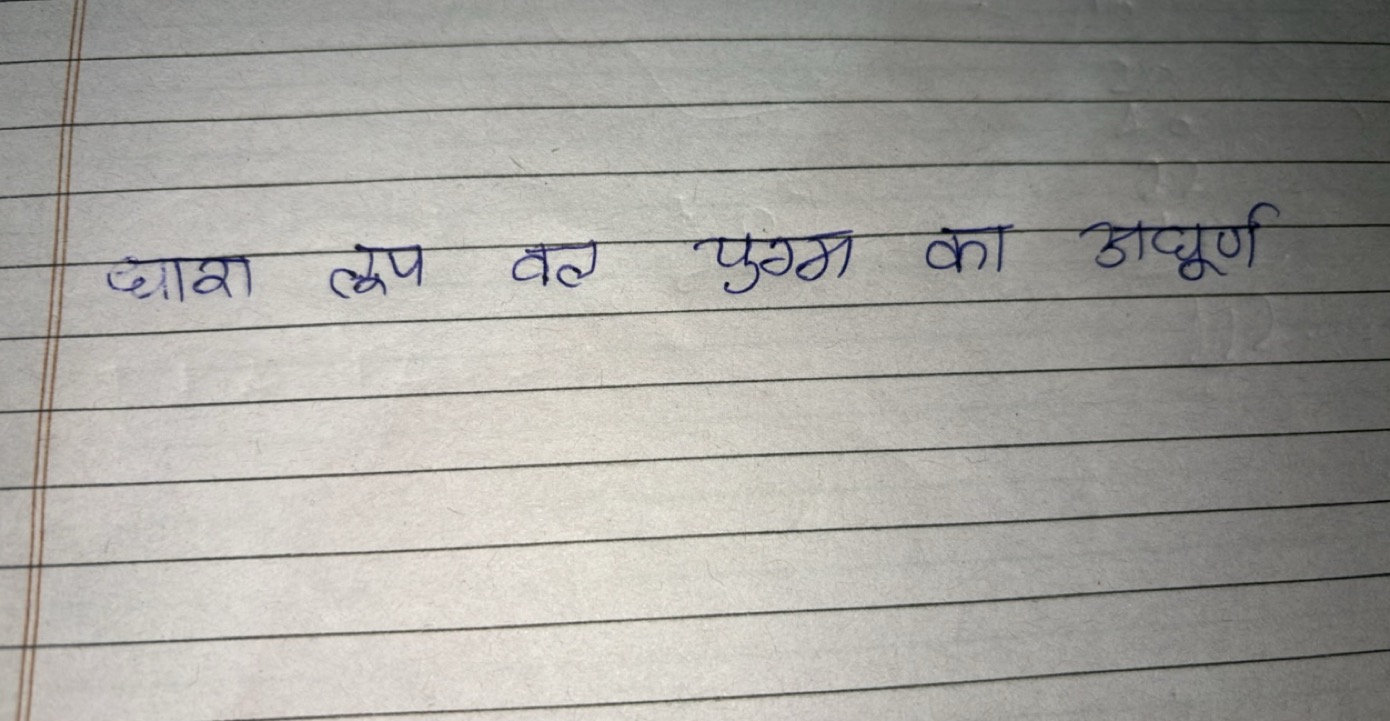 धारा लूप वल युग्म का अघूर्ण